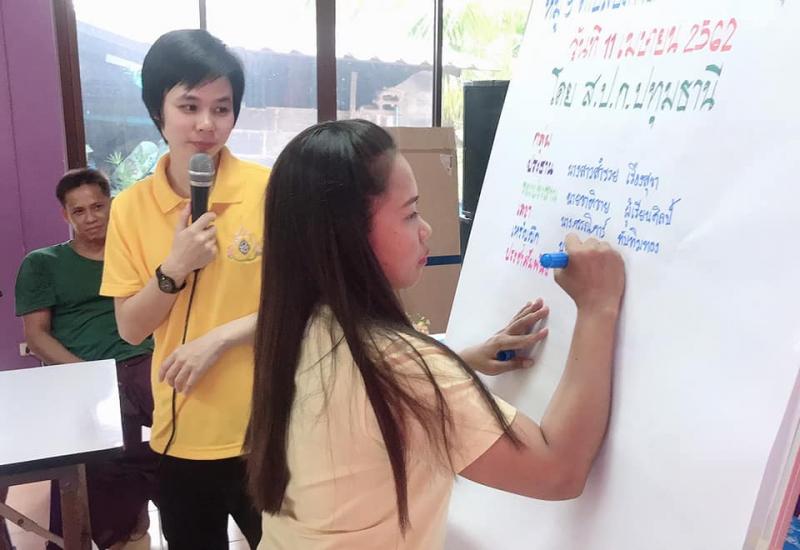 หมู่ 5
วันที่ 11 เมษายน 2562
โดย ส.ป.ก.ปทุมธานี
กลุ่ม
ประธาน นางสาวสำรวย เรืองสุขา
นายชาติชาย ผู้เรียนศิลป์
เลขา นางศรรณิกาช์ ทับทิมทอง
เหรัญญิก
ประชาสัมพันธ์